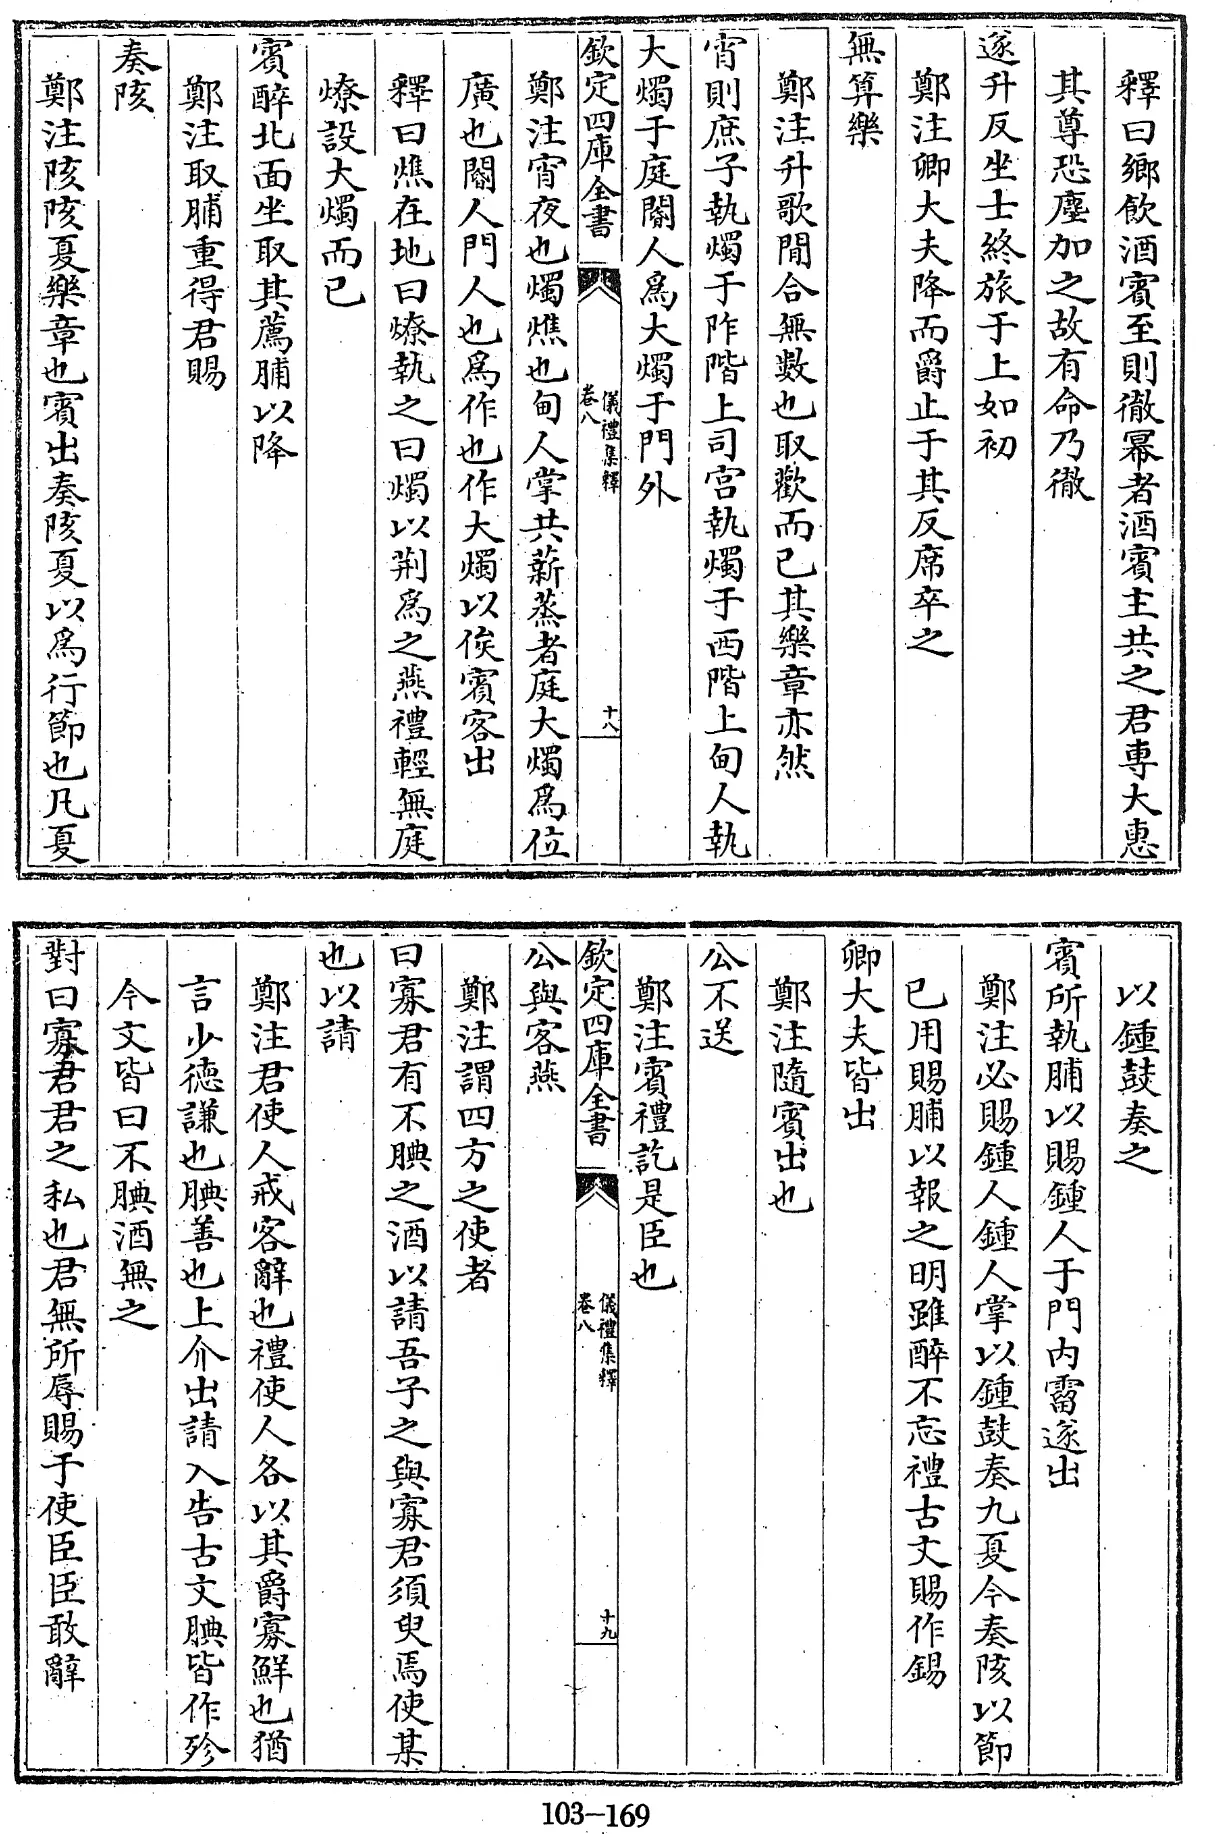 釋曰鄉飲酒賓至則徹冪者酒賓主共之君專大惠
其尊恐塵加之故有命乃徹
遂升反坐士終旅于上如初
鄭注卿大夫降而爵止于其反席卒之
無算樂
鄭注升歌閒合無數也取歡而已其樂章亦然
宵則庶子執燭于阼階上司宫執燭于西階上甸人執
大燭于庭閽人爲大燭于門外
欽定四庫全書
儀禮集釋
卷八
十八
鄭注宵夜也燭燋也甸人掌共薪蒸者庭大燭爲位
廣也閽人門人也爲作也作大燭以俟賓客出
釋曰燋在地曰燎執之曰燭以荆爲之燕禮輕無庭
燎設大燭而已
賓醉北面坐取其薦脯以降
鄭注取脯重得君賜
奏陔
鄭注陔陔夏樂章也賓出奏陔夏以爲行節也凡夏
以鍾鼓奏之
賓所執脯以賜鍾人于門内霤遂出
鄭注必賜鍾人鍾人掌以鍾鼓奏九夏今奏陔以節
已用賜脯以報之明雖醉不忘禮古文賜作錫
卿大夫皆出
鄭注隨賓出也
公不送
鄭注賓禮訖是臣也
欽定四庫全書
儀禮集釋
卷八
十九
公與客燕
鄭注謂四方之使者
曰寡君有不腆之酒以請吾子之與寡君須臾焉使某
也以請
鄭注君使人戒客辭也禮使人各以其爵寡鮮也猶
言少德謙也腆善也上介出請入告古文腆皆作殄
今文皆曰不腆酒無之
對曰寡君君之私也君無所辱賜于使臣臣敢辭
103-169